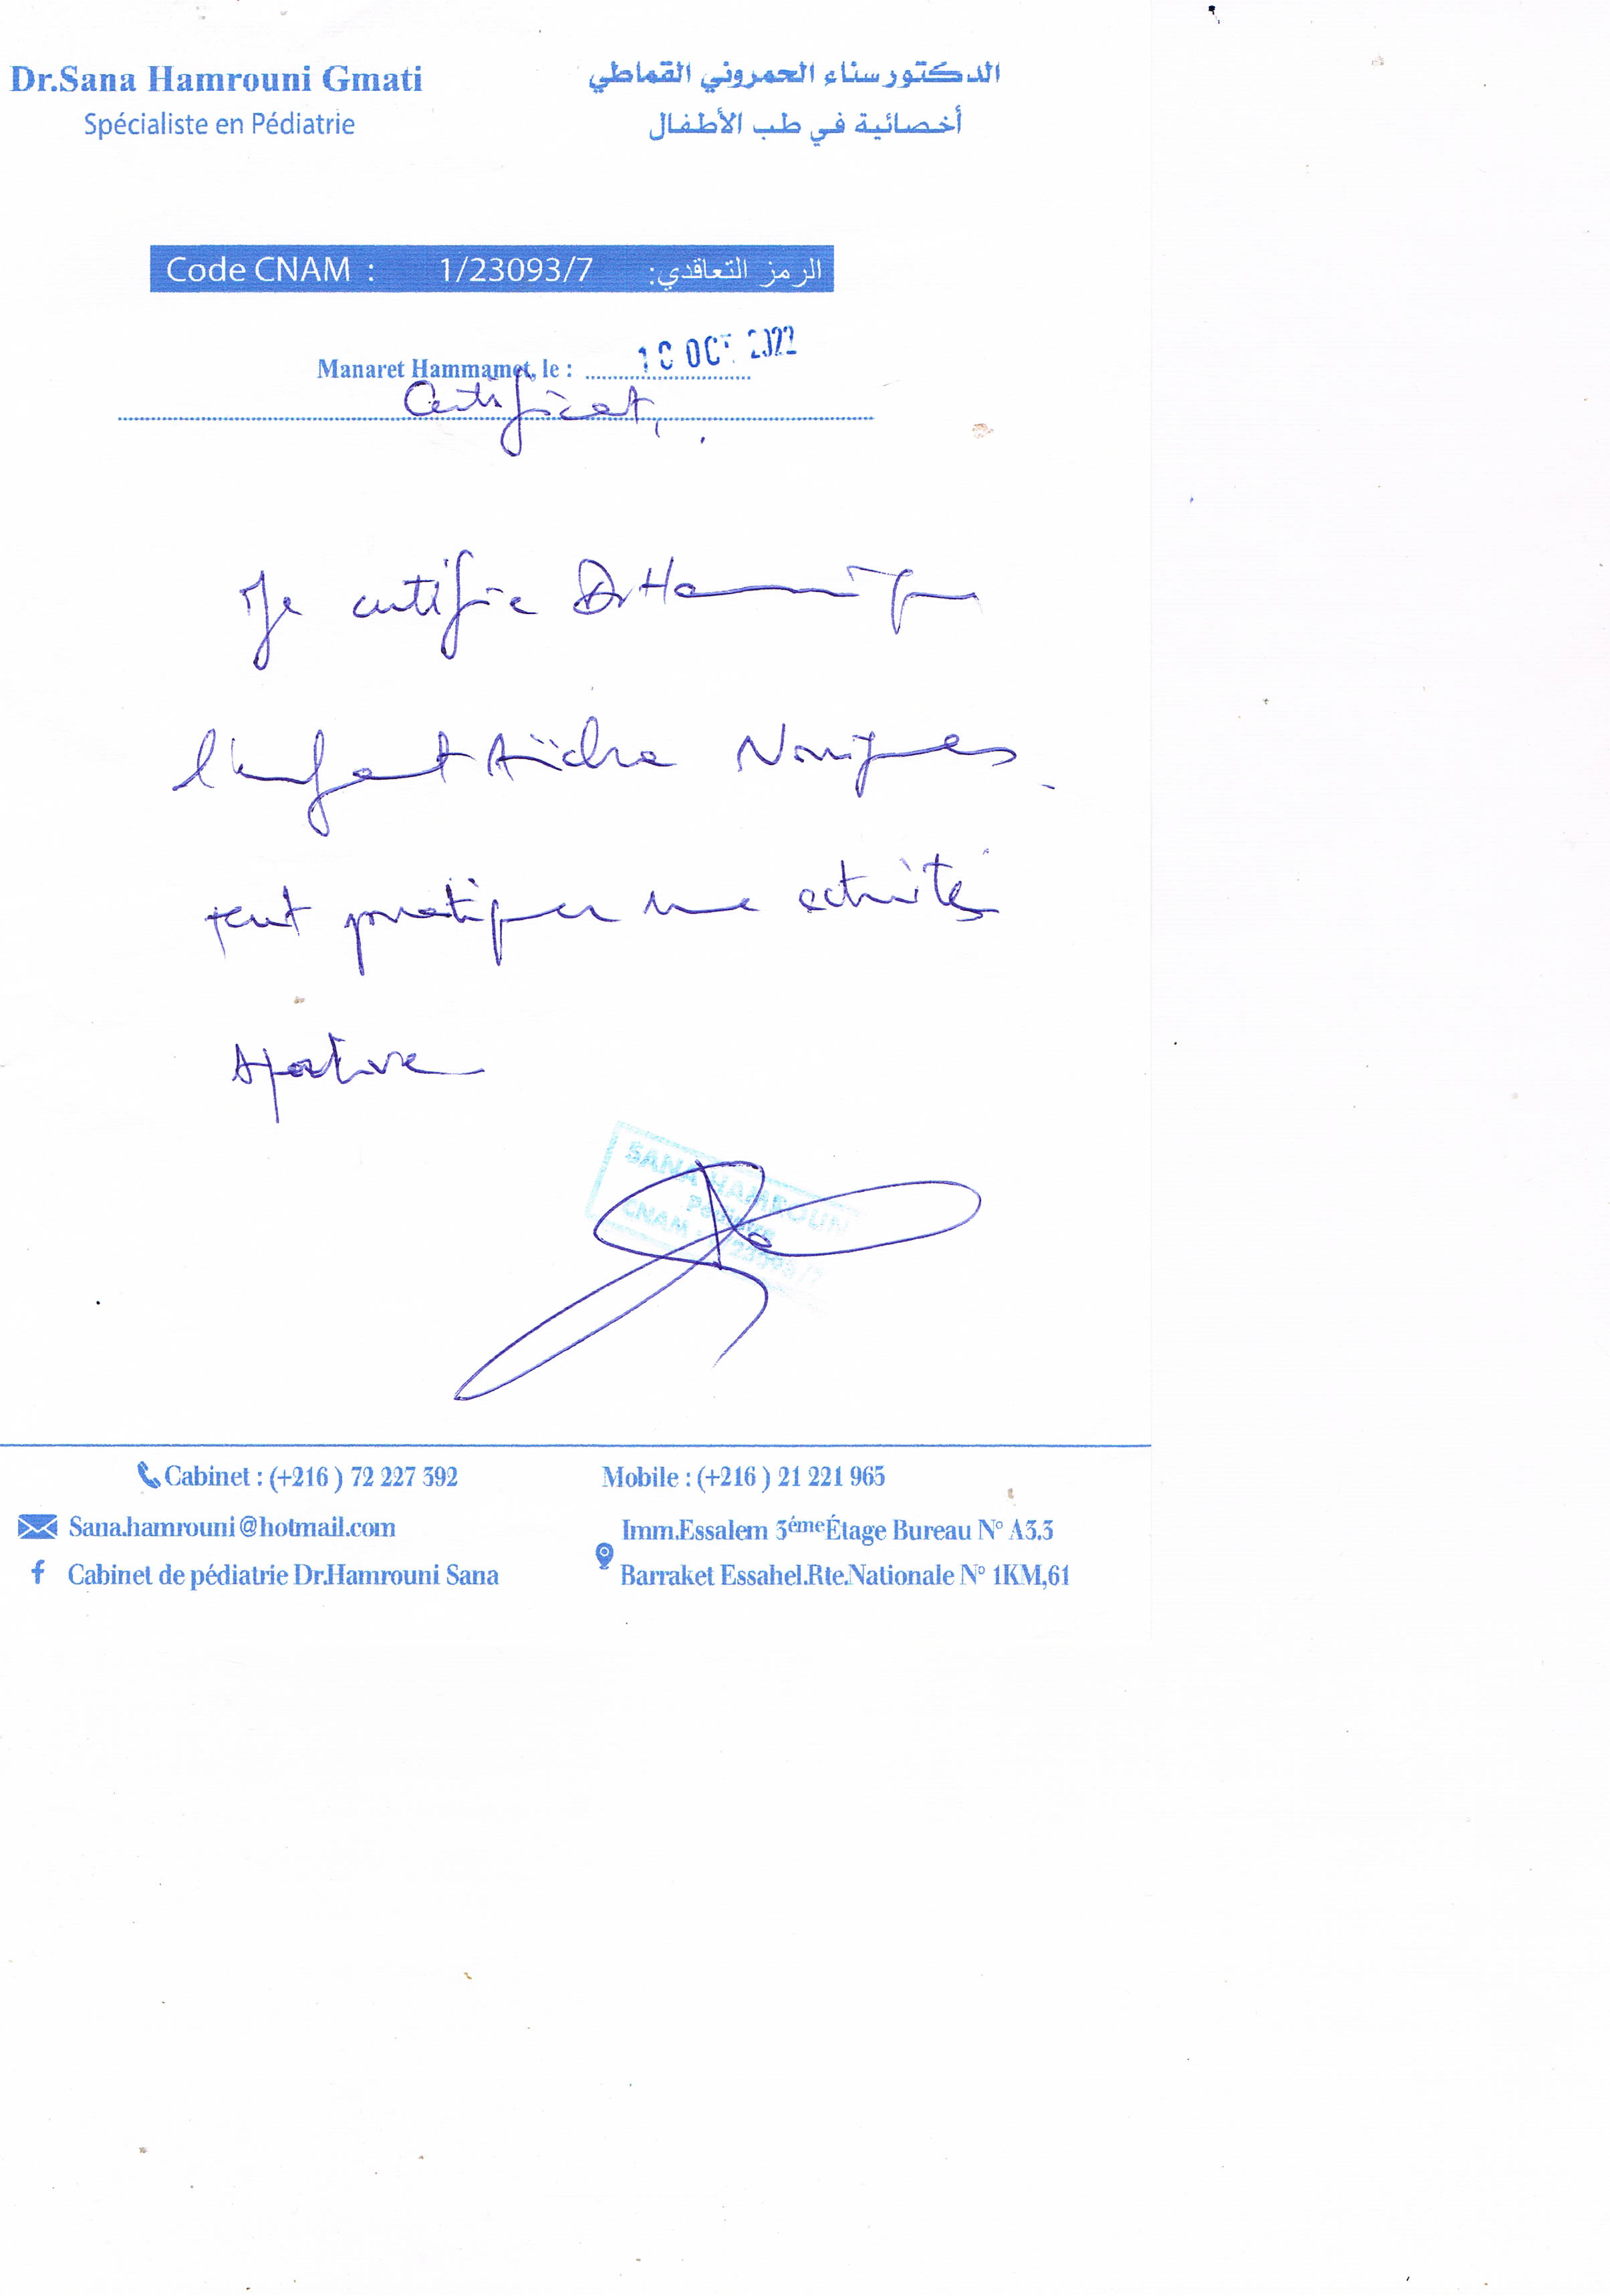 Dr.Sana Hamrouni Gmati
Spécialiste en Pédiatrie
الدكتور سناء الحمروني القماطي
أخصائية في طب الأطفال
Code CNAM : 1/23093/7 الرمز التعاقدي:
Manaret Hammamet, le : OCT 2022
Certificat,
Je certifie Dr
l'enfant Aïcha
peut pratiquer une activité
sportive
SANA HAMROUNI
CNAM
Cabinet : (+216 ) 72 227 392
Mobile : (+216 ) 21 221 965
Sana.hamrouni@hotmail.com
Cabinet de pédiatrie Dr.Hamrouni Sana
Imm.Essalem 3émeÉtage Bureau N° A3.3
Barraket Essahel.Rte.Nationale N° 1KM,61